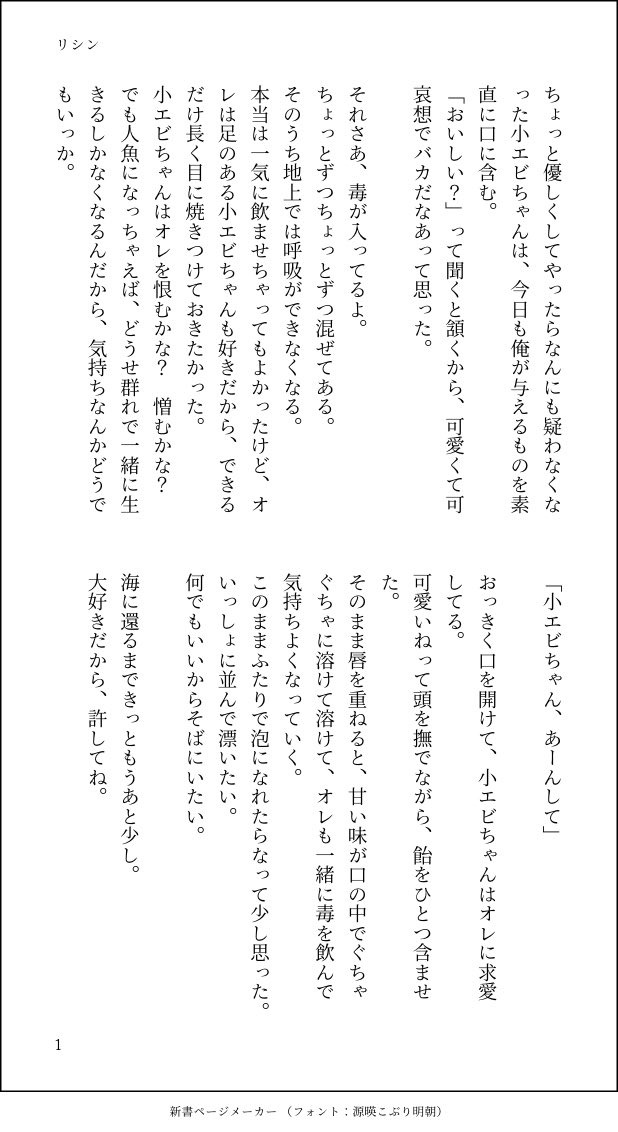 リシン
ちょっと優しくしてやったらなんにも疑わなくな
った小エビちゃんは、今日も俺が与えるものを素
直に口に含む。
「おいしい？」って聞くと頷くから、可愛くて可
哀想でバカだなあって思った。
それさあ、毒が入ってるよ。
ちょっとずつちょっとずつ混ぜてある。
そのうち地上では呼吸ができなくなる。
本当は一気に飲ませちゃってもよかったけど、オ
レは足のある小エビちゃんも好きだから、できる
だけ長く目に焼きつけておきたかった。
小エビちゃんはオレを恨むかな？　憎むかな？
でも人魚になっちゃえば、どうせ群れで一緒に生
きるしかなくなるんだから、気持ちなんかどうで
もいっか。
「小エビちゃん、あーんして」
おっきく口を開けて、小エビちゃんはオレに求愛
してる。
可愛いねって頭を撫でながら、飴をひとつ含ませ
た。
そのまま唇を重ねると、甘い味が口の中でぐちゃ
ぐちゃに溶けて溶けて、オレも一緒に毒を飲んで
気持ちよくなっていく。
このままふたりで泡になれたらなって少し思った。
いっしょに並んで漂いたい。
何でもいいからそばにいたい。
海に還るまできっともうあと少し。
大好きだから、許してね。
1
新書ページメーカー（フォント：源暎こぶり明朝）